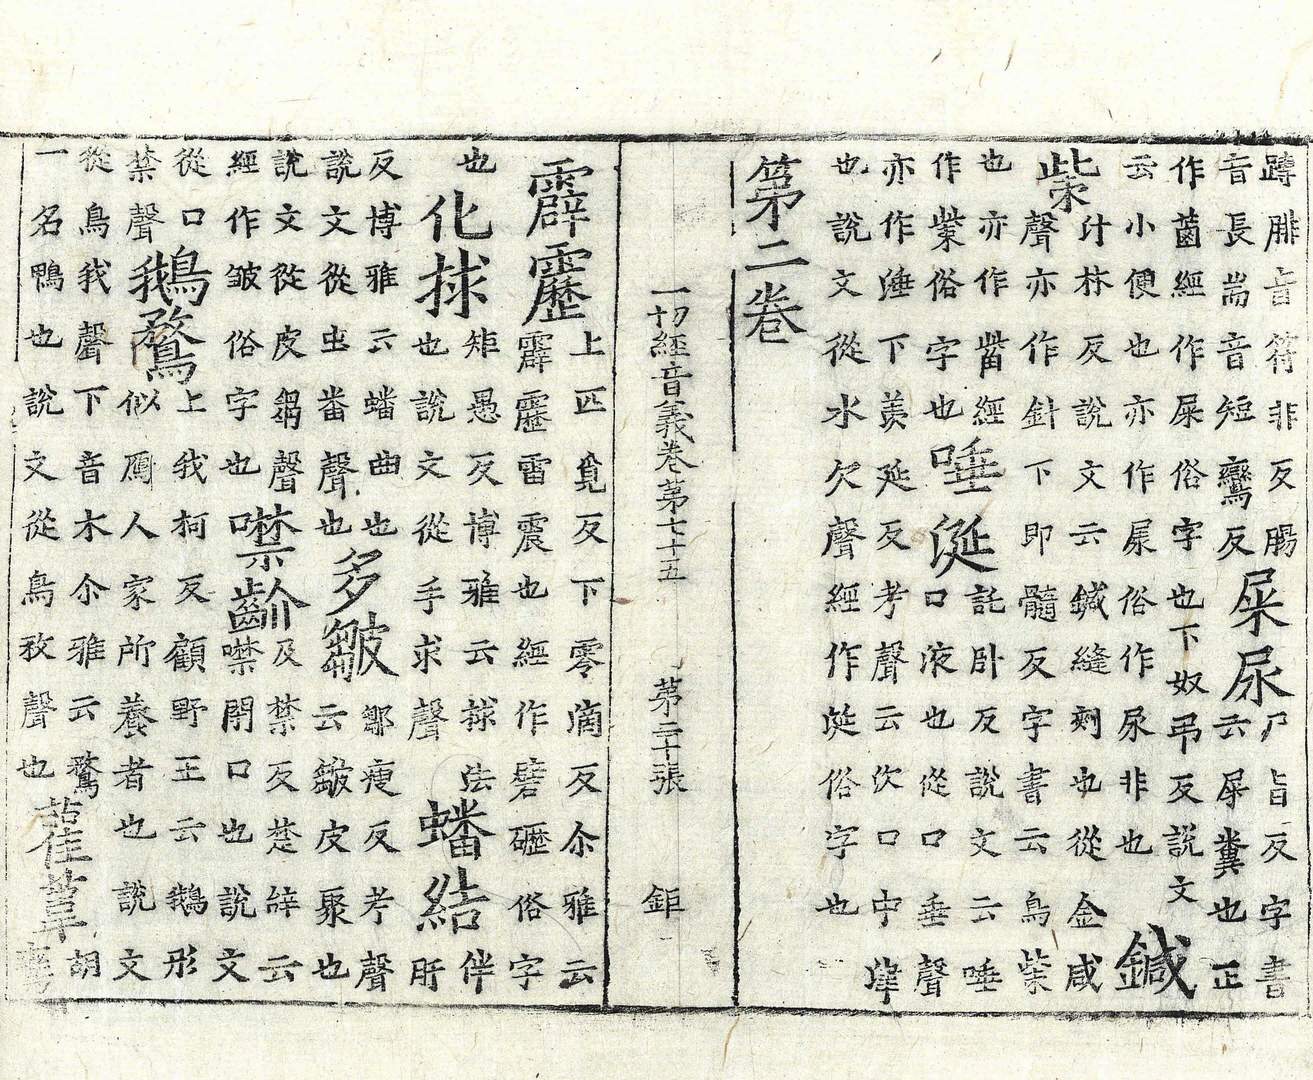 蹲腓音符非反腸
音長耑音短臠反
屎尿
尸旨反字書
云屎糞也正
作𦳊經作屎俗字也下奴弔反說文
云小便也亦作㞙俗作尿非也
鍼
㭰
汁林反說文云鍼縫刺也從金咸
聲亦作針下即髓反字書云鳥㭰
也亦作㭰經
作紫俗字也
唾涎
託卧反說文云唾
口液也從口垂聲
亦作涶下羨延反考聲云㳄口中津
也說文從水欠聲經作涎俗字也
第二卷
一切經音義卷第七十五 第三十張 鉅
霹靂
上匹覓反下零滴反尒雅云
霹靂雷震也經作礔礰俗字
也
化捄
矩愚反博雅云捄法
也說文從手求聲
蟠結
伴
肝
反博雅云蟠曲也
說文從虫番聲也
多皺
鄒瘦反考聲
云皺皮聚也
說文從皮芻聲
經作皱俗字也
噤齘
及禁反楚辞云
噤閉口也說文
從口
禁聲
鵝鶩
上我柯反顧野王云鵝形
似鴈人家所養者也說文
從鳥我聲下音木尒雅云鶩
一名鴨也說文從鳥敄聲也
雚葦
胡